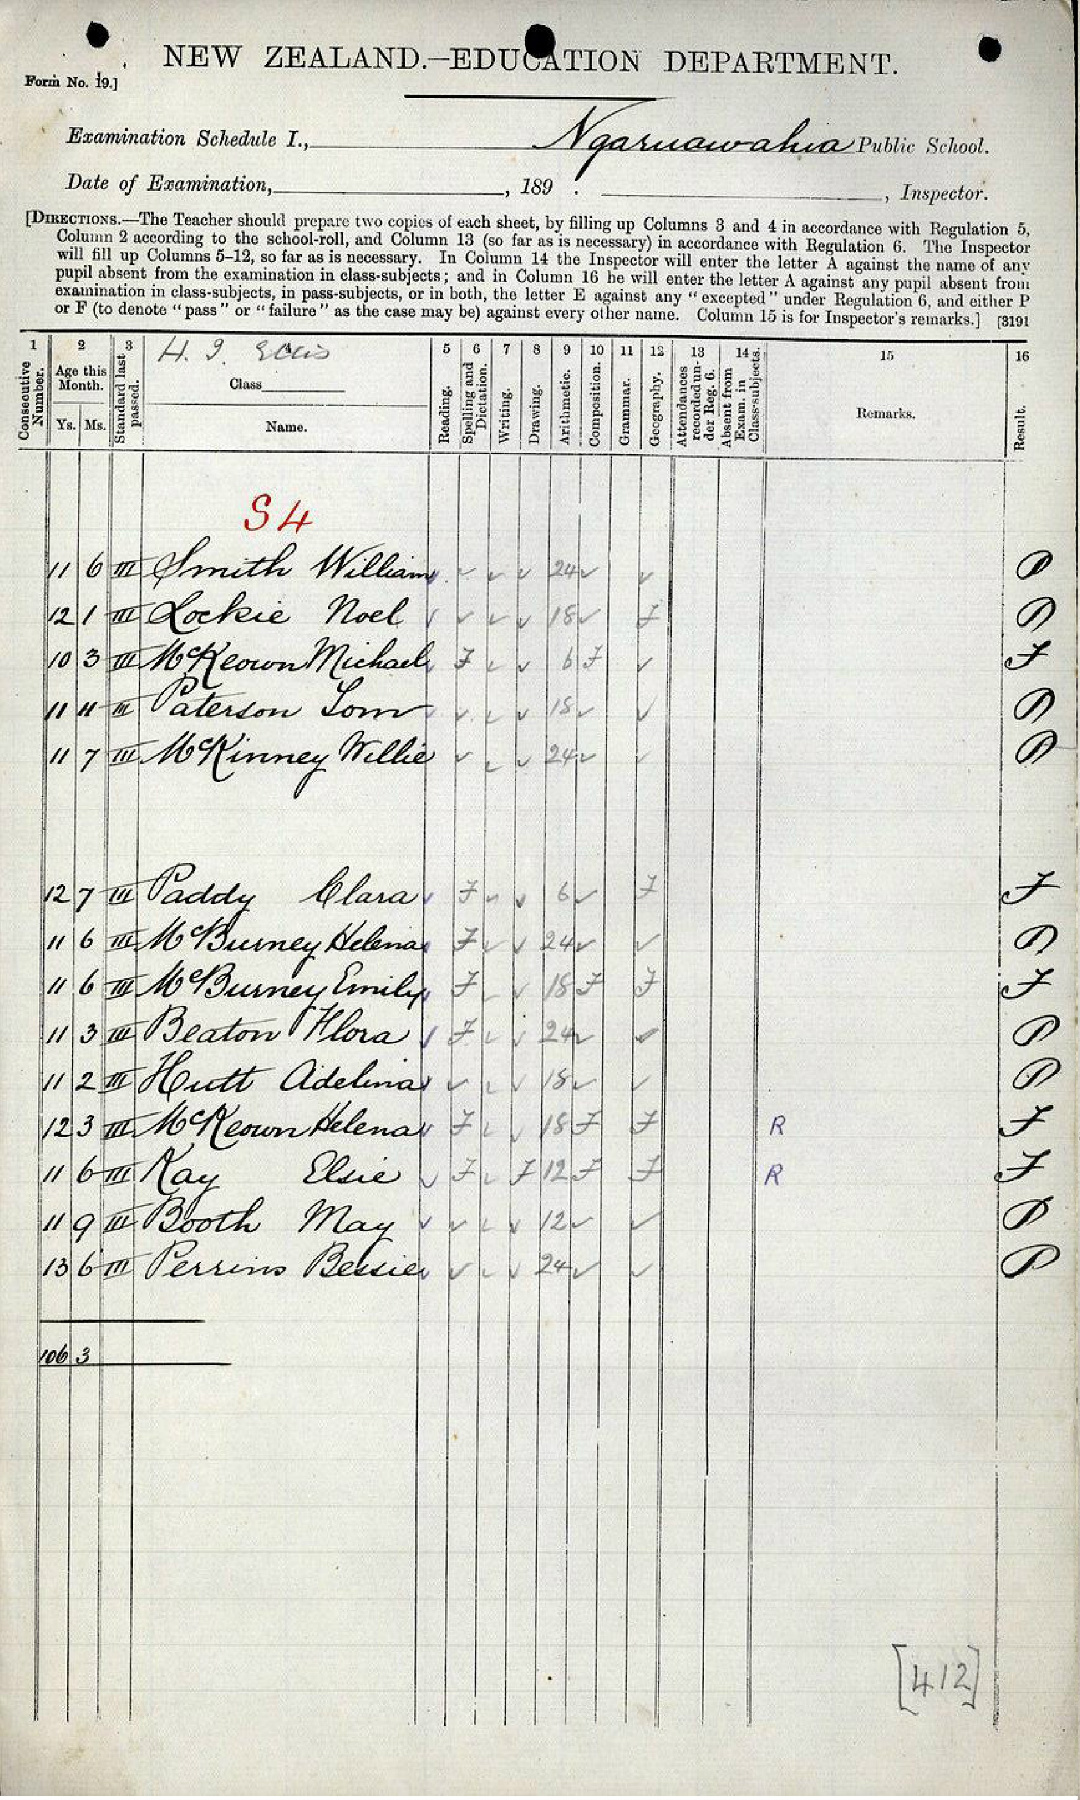 NEW ZEALAND.—EDUCATION DEPARTMENT.
Form No. 19.]
Examination Schedule I., Ngaruawahia Public School.
Date of Examination, , 189 . , Inspector.
[DIRECTIONS.—The Teacher should prepare two copies of each sheet, by filling up Columns 3 and 4 in accordance with Regulation 5,
Column 2 according to the school-roll, and Column 13 (so far as is necessary) in accordance with Regulation 6. The Inspector
will fill up Columns 5–12, so far as is necessary. In Column 14 the Inspector will enter the letter A against the name of any
pupil absent from the examination in class-subjects; and in Column 16 he will enter the letter A against any pupil absent from
examination in class-subjects, in pass-subjects, or in both, the letter E against any "excepted" under Regulation 6, and either P
or F (to denote "pass" or "failure" as the case may be) against every other name. Column 15 is for Inspector's remarks.] [3191
1 2 3 4 5 6 7 8 9 10 11 12 13 14 15 16
Consecutive Number. Age this Month. Ys. Ms. Standard last passed. Class Name. Reading. Spelling and Dictation. Writing. Drawing. Arithmetic. Composition. Grammar. Geography. Attendances recorded under Reg. 6. Absent from Exam. in Class-subjects. Remarks. Result.
S4
11 6 III Smith William ✓ ✓ ✓ ✓ 24 ✓ ✓ P
12 1 III Lockie Noel ✓ ✓ ✓ ✓ 18 ✓ F P
10 3 III McKeown Michael ✓ F ✓ ✓ 6 F ✓ F
11 11 III Paterson Tom ✓ ✓ ✓ ✓ 18 ✓ ✓ P
11 7 III McKinney Willie ✓ ✓ ✓ 24 ✓ ✓ P
12 7 III Paddy Clara ✓ F ✓ ✓ 6 ✓ F F
11 6 III McBurney Helena ✓ F ✓ ✓ 24 ✓ ✓ P
11 6 III McBurney Emily ✓ F ✓ ✓ 18 F F F
11 3 III Beaton Flora ✓ F ✓ ✓ 24 ✓ ✓ P
11 2 III Hutt Adelina ✓ ✓ ✓ ✓ 18 ✓ ✓ P
12 3 III McKeown Helena ✓ F ✓ ✓ 18 F F R F
11 6 III Kay Elsie ✓ F ✓ F 12 F F R F
11 9 III Booth May ✓ ✓ ✓ ✓ 12 ✓ ✓ P
13 6 III Perrins Bessie ✓ ✓ ✓ ✓ 24 ✓ ✓ P
106 3
[412]